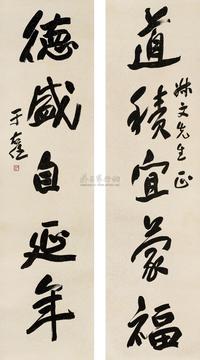 道積宜蒙福
德盛自延年
文先生正
于右任